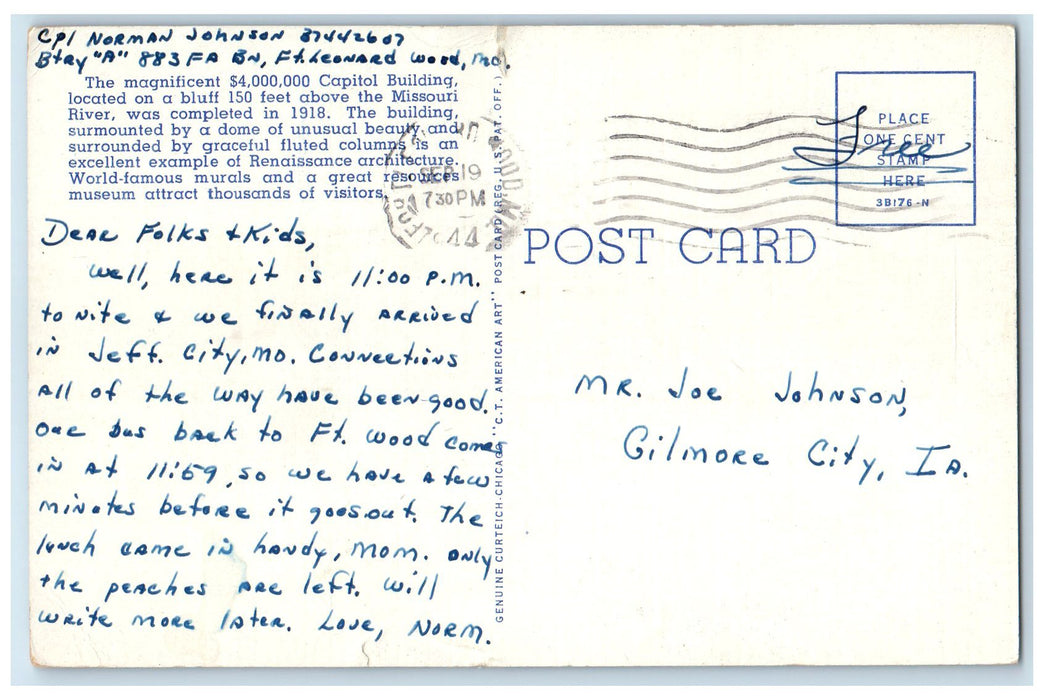 Cpl Norman Johnson 37442607
Btry "A" 883 FA Bn, Ft. Leonard Wood, Mo.
The magnificent $4,000,000 Capitol Building,
located on a bluff 150 feet above the Missouri
River, was completed in 1918. The building,
surmounted by a dome of unusual beauty and
surrounded by graceful fluted columns is an
excellent example of Renaissance architecture.
World-famous murals and a great resources
museum attract thousands of visitors.
Dear Folks & Kids,
Well, here it is 11:00 P.M.
to nite & we finally arrived
in Jeff. City, Mo. Connections
all of the way have been good.
Our bus back to Ft. Wood comes
in at 11:59, so we have a few
minutes before it goes out. The
lunch came in handy, Mom. Only
the peaches are left. Will
write more later. Love, Norm.
SEP 19
7 30 PM
44
GENUINE CURTEICH-CHICAGO "C.T. AMERICAN ART" POST CARD (REG. U.S. PAT. OFF.)
POST CARD
PLACE
ONE CENT
STAMP
HERE
3B176-N
Free
Mr. Joe Johnson,
Gilmore City, Ia.